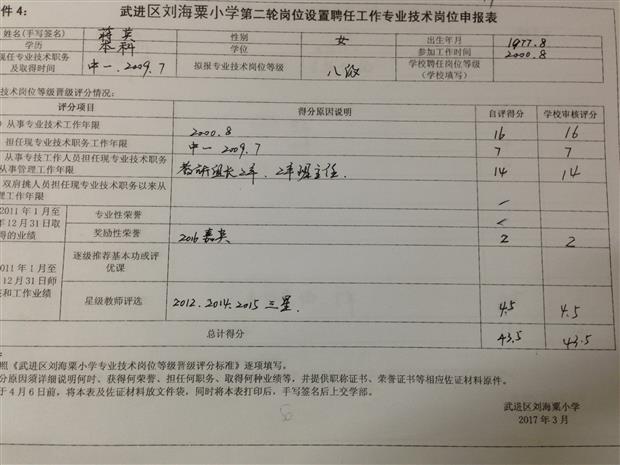 件4：
武进区刘海粟小学第二轮岗位设置聘任工作专业技术岗位申报表
姓名(手写签名) 蒋英 性别 女 出生年月 1977.8
学历 本科 学位 参加工作时间 2000.8
现任专业技术职务及取得时间 中一.2009.7 拟报专业技术岗位等级 八级 学校聘任岗位等级(学校填写)
技术岗位等级晋级评分情况：
评分项目 得分原因说明 自评得分 学校审核评分
从事专业技术工作年限 2000.8 16 16
担任现专业技术职务工作年限 中一 2009.7 7 7
从事专技工作人员担任现专业技术职务
从事管理工作年限 教研组长2年、2年班主任. 14 14
双肩挑人员担任现专业技术职务以来从
理工作年限
2011年1月至 专业性荣誉
年12月31日取
得的业绩 奖励性荣誉 2016嘉奖 2 2
011年1月至 逐级推荐基本功或评优课
12月31日师
和工作业绩 星级教师评选 2012.2014.2015 三星. 4.5 4.5
总计得分 43.5 43.5
照《武进区刘海粟小学专业技术岗位等级晋级评分标准》逐项填写。
分原因须详细说明何时、获得何荣誉、担任何职务、取得何种业绩等，并提供职称证书、荣誉证书等相应佐证材料原件。
于4月6日前，将本表及佐证材料放文件袋，同时将本表打印后，手写签名后上交学部。
武进区刘海粟小学
2017年3月